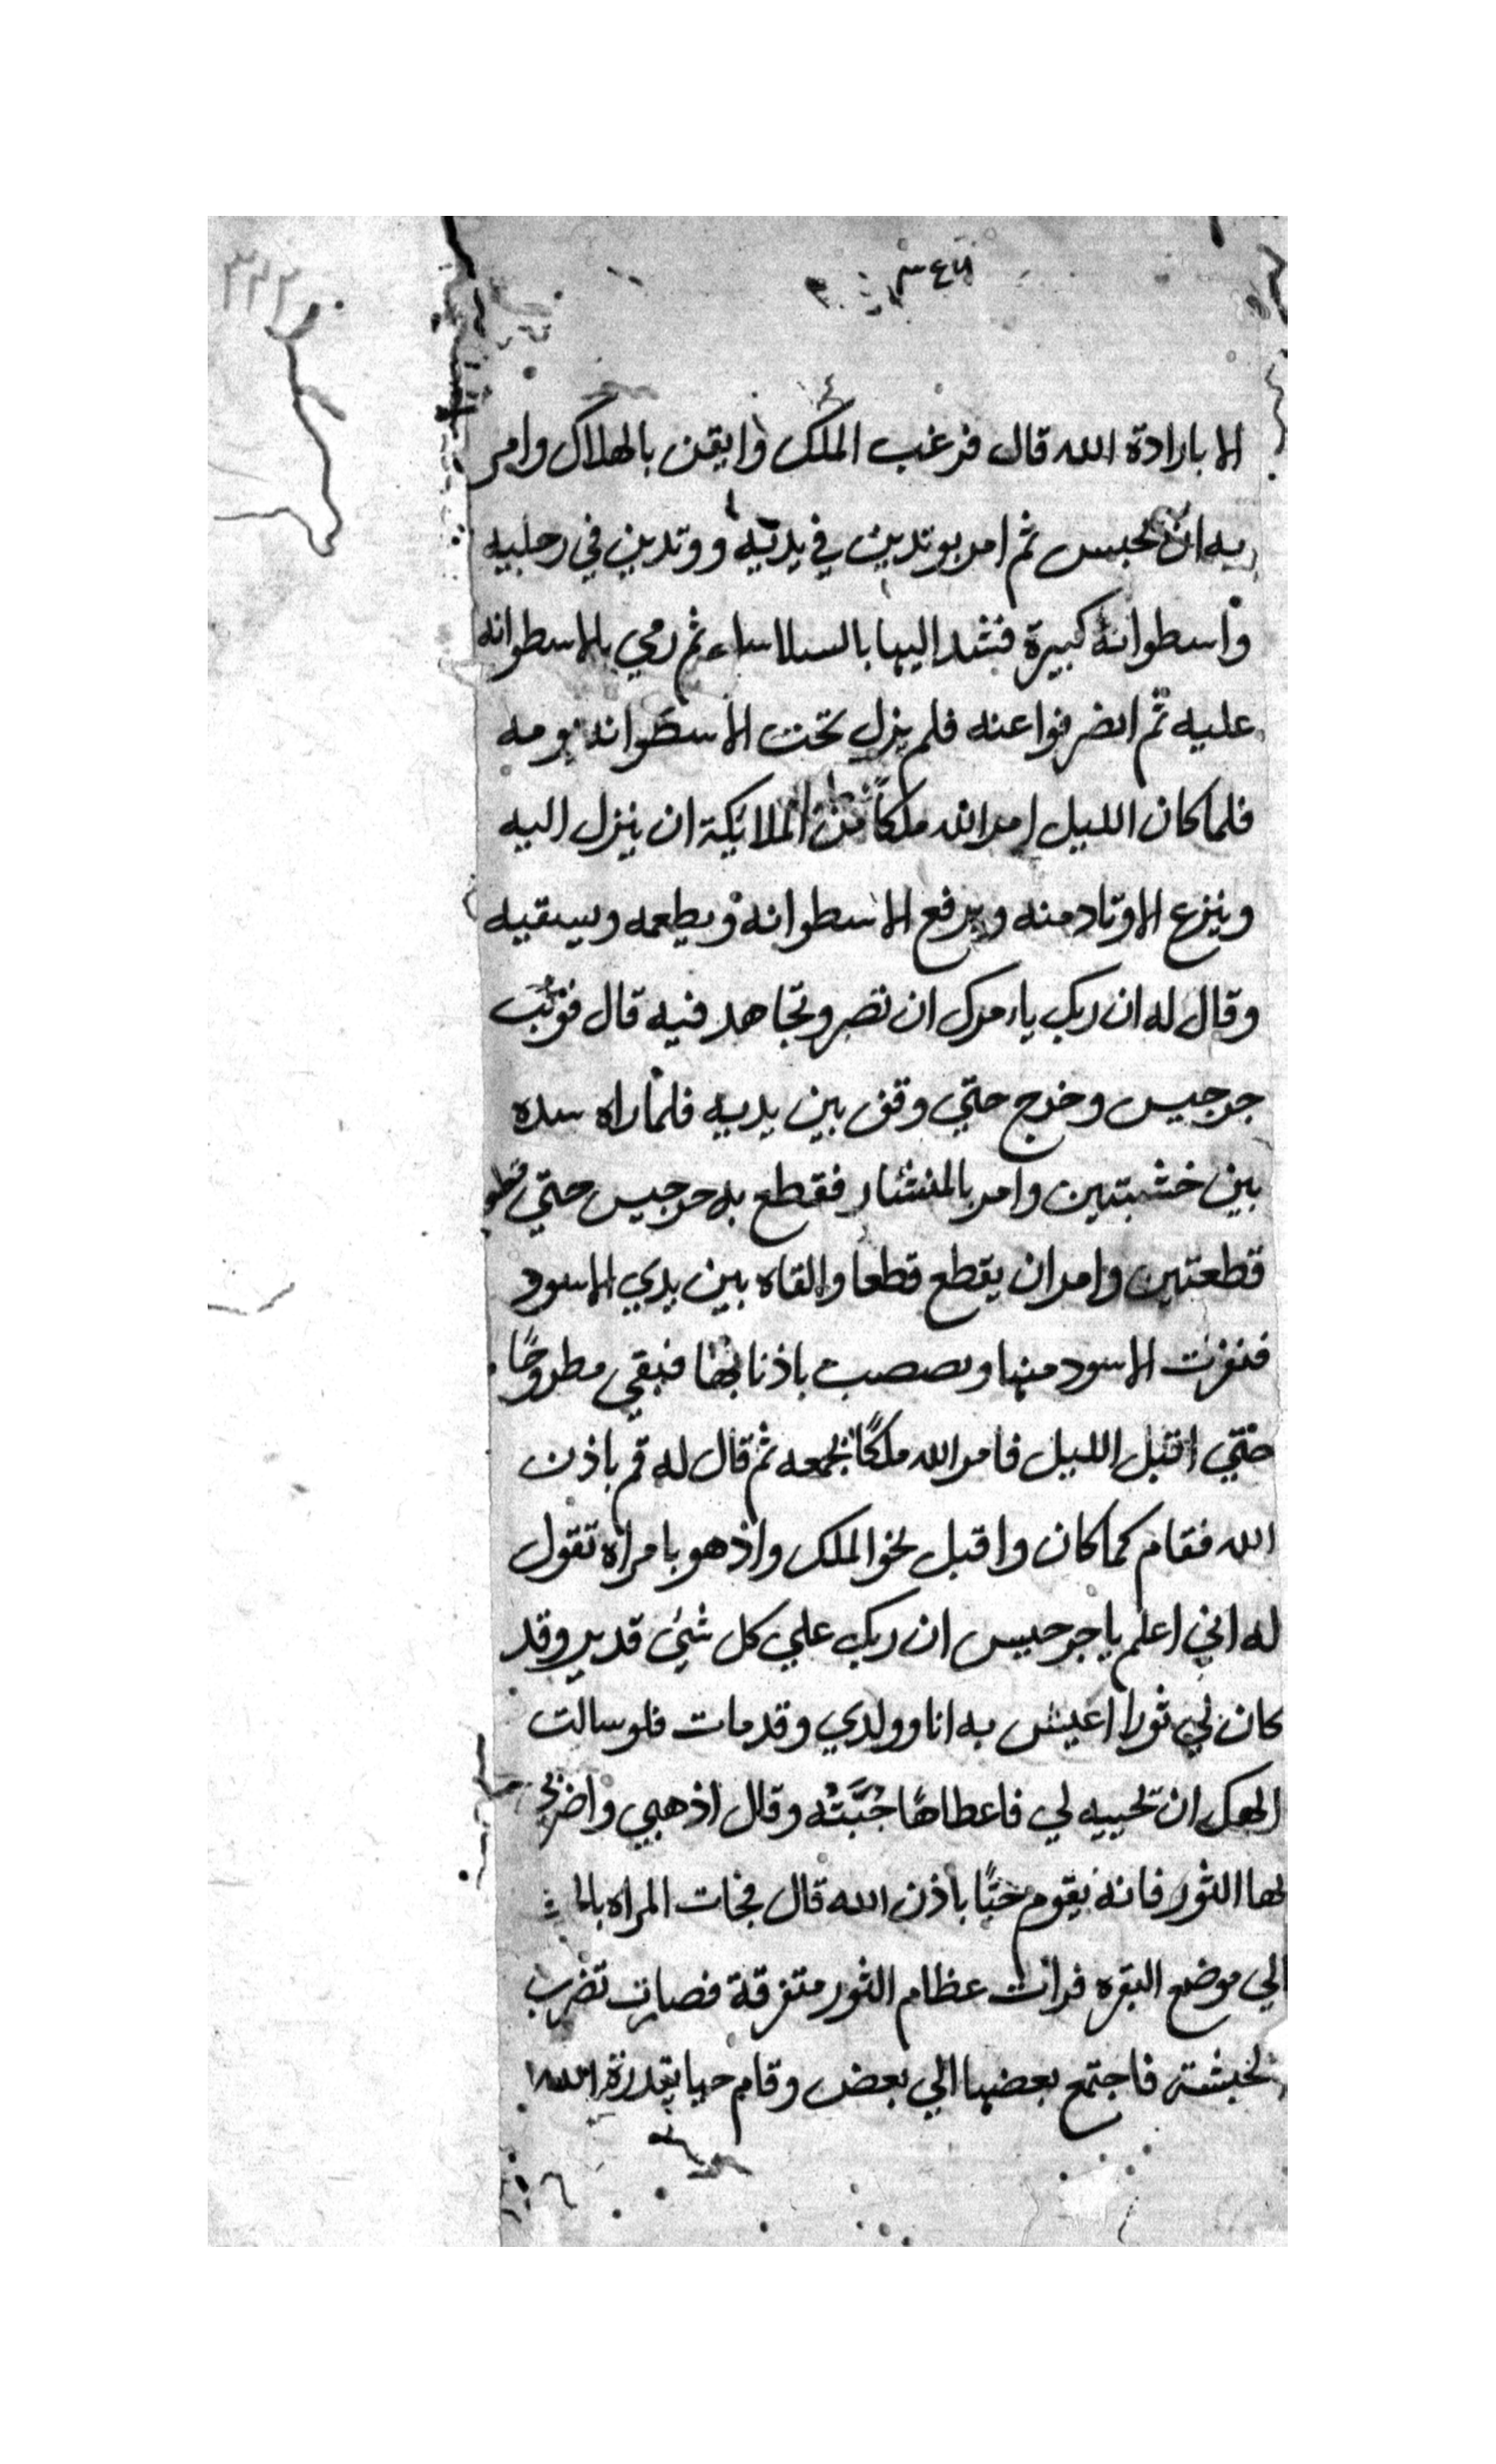 الا بارادة الله قال فرغب الملك وايقن بالهلاك وامر
به ان يحبس ثم امر بوتدين في يديه ووتدين في رجليه
واسطوانة كبيرة فشد اليها بالسلاسل ثم رمي بالاسطوانه
عليه ثم انصرفوا عنه فلم يزل تحت الاسطوانه يومه
فلما كان الليل امر الله ملكًا من الملائكة ان ينزل اليه
وينزع الاوتاد منه ويرفع الاسطوانه ويطعمه ويسقيه
وقال له ان ربك يامرك ان تصبر وتجاهد فيه قال فوثب
جرجيس وخرج حتي وقف بين يديه فلما راه شده
بين خشبتين وامر بالمنشار فقطع به جرجيس حتي
قطعتين وامر ان يقطع قطعا والقاه بين يدي الاسود
فنفرت الاسود منها وبصصبت باذنابها فبقي مطروحًا
حتي اقبل الليل فامر الله ملكًا بجمعه ثم قال له قم باذن
الله فقام كما كان واقبل نحو الملك واذ هو بامراة تقول
له اني اعلم يا جرجيس ان ربك علي كل شئ قدير وقد
كان لي ثورا اعيش به انا وولدي وقد مات فلو سالت
الهك ان تحييه لي فاعطاها جُبَّتُه وقال اذهبي واضربي
بها الثور فانه يقوم حيًا باذن الله قال فجات المراه
الي موضع البقره فرات عظام الثور متفرقة فصارت تضرب
فاجتمع بعضها الي بعض وقام حيا بقدرة الله